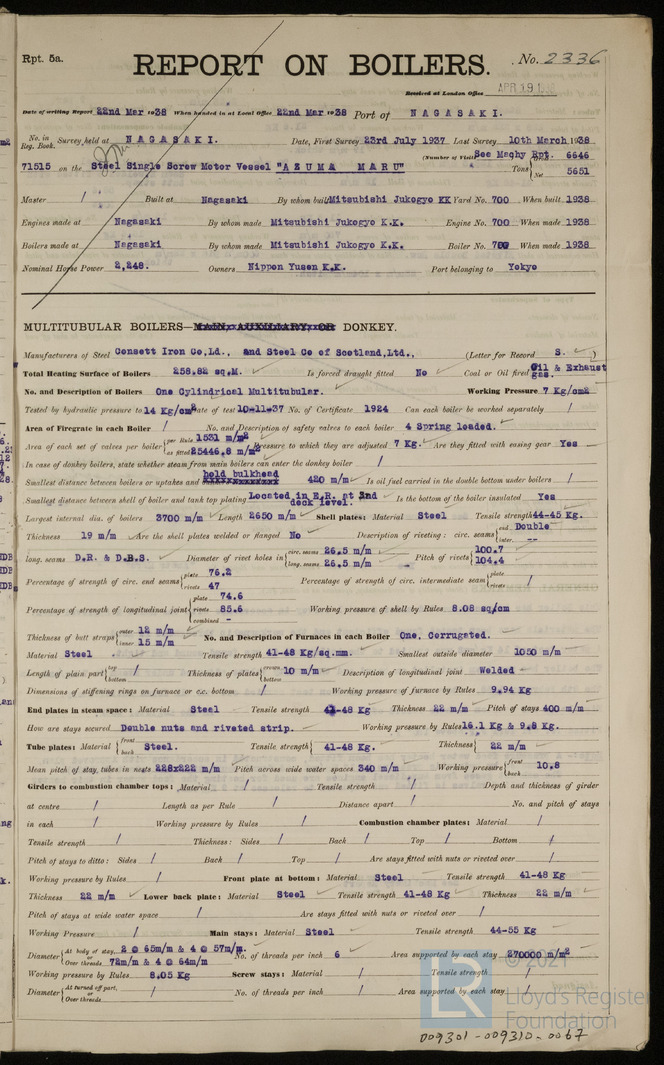 Rpt. 5a.
REPORT ON BOILERS.
No. 2336
Received at London Office APR 19 1938
Date of writing Report 22nd Mar 1938 When handed in at Local Office 22nd Mar 1938 Port of NAGASAKI.
No. in Reg. Book. Survey held at NAGASAKI. Date, First Survey 23rd July 1937 Last Survey 10th March 1938
(Number of Visits See Machy Rpt.
71515 on the Steel Single Screw Motor Vessel "AZUMA MARU" Tons 6646 Net 5651
Master / Built at Nagasaki By whom built Mitsubishi Jukogyo KK Yard No. 700 When built 1938
Engines made at Nagasaki By whom made Mitsubishi Jukogyo K.K. Engine No. 700 When made 1938
Boilers made at Nagasaki By whom made Mitsubishi Jukogyo K.K. Boiler No. 700 When made 1938
Nominal Horse Power 2,248. Owners Nippon Yusen K.K. Port belonging to Yokyo
MULTITUBULAR BOILERS—MAIN, AUXILIARY, OR DONKEY.
Manufacturers of Steel Consett Iron Co,Ld., and Steel Co of Scotland,Ltd., (Letter for Record S. )
Total Heating Surface of Boilers 258.82 sq.M. Is forced draught fitted No Coal or Oil fired Oil & Exhaust gas.
No. and Description of Boilers One Cylindrical Multitubular. Working Pressure 7 Kg/cm2
Tested by hydraulic pressure to 14 Kg/cm2 Date of test 10-11-37 No. of Certificate 1924 Can each boiler be worked separately /
Area of Firegrate in each Boiler / No. and Description of safety valves to each boiler 4 Spring loaded.
Area of each set of valves per boiler { per Rule 1531 m/m2 as fitted 25446.8 m/m2 Pressure to which they are adjusted 7 Kg. Are they fitted with easing gear Yes
In case of donkey boilers, state whether steam from main boilers can enter the donkey boiler /
Smallest distance between boilers or uptakes and hold bulkhead 420 m/m Is oil fuel carried in the double bottom under boilers /
Smallest distance between shell of boiler and tank top plating Located in E.R. at 2nd deck level. Is the bottom of the boiler insulated Yes
Largest internal dia. of boilers 3700 m/m Length 2650 m/m Shell plates: Material Steel Tensile strength 44-45 Kg.
Thickness 19 m/m Are the shell plates welded or flanged No Description of riveting: circ. seams { end Double inter. --
long. seams D.R. & D.B.S. Diameter of rivet holes in { circ. seams 26.5 m/m long. seams 26.5 m/m Pitch of rivets { 100.7 104.4
Percentage of strength of circ. end seams { plate 76.2 rivets 47 Percentage of strength of circ. intermediate seam { plate rivets /
Percentage of strength of longitudinal joint { plate 74.6 rivets 85.6 combined - Working pressure of shell by Rules 8.08 sq/cm
Thickness of butt straps { outer 12 m/m inner 15 m/m No. and Description of Furnaces in each Boiler One, Corrugated.
Material Steel Tensile strength 41-48 Kg/sq.mm. Smallest outside diameter 1050 m/m
Length of plain part { top bottom / Thickness of plates { crown bottom 10 m/m Description of longitudinal joint Welded
Dimensions of stiffening rings on furnace or c.c. bottom / Working pressure of furnace by Rules 9.94 Kg
End plates in steam space: Material Steel Tensile strength 41-48 Kg Thickness 22 m/m Pitch of stays 400 m/m
How are stays secured Double nuts and riveted strip. Working pressure by Rules 16.1 Kg & 9.8 Kg.
Tube plates: Material { front back Steel. Tensile strength { 41-48 Kg. Thickness { 22 m/m
Mean pitch of stay tubes in nests 228x222 m/m Pitch across wide water spaces 340 m/m Working pressure { front back 10.8
Girders to combustion chamber tops: Material / Tensile strength / Depth and thickness of girder
at centre / Length as per Rule / Distance apart / No. and pitch of stays
in each / Working pressure by Rules / Combustion chamber plates: Material /
Tensile strength / Thickness: Sides / Back / Top / Bottom /
Pitch of stays to ditto: Sides / Back / Top / Are stays fitted with nuts or riveted over /
Working pressure by Rules / Front plate at bottom: Material Steel Tensile strength 41-48 Kg
Thickness 22 m/m Lower back plate: Material Steel Tensile strength 41-48 Kg Thickness 22 m/m
Pitch of stays at wide water space / Are stays fitted with nuts or riveted over /
Working Pressure / Main stays: Material Steel Tensile strength 44-55 Kg
Diameter { At body of stay, 2 @ 65m/m & 4 @ 57m/m. or Over threads 72m/m & 4 @ 64m/m No. of threads per inch 6 Area supported by each stay 270000 m/m2
Working pressure by Rules 8.05 Kg Screw stays: Material / Tensile strength /
Diameter { At turned off part, or Over threads / No. of threads per inch / Area supported by each stay /
© 2021
LR
Lloyd's Register
Foundation
009301-009310-0067